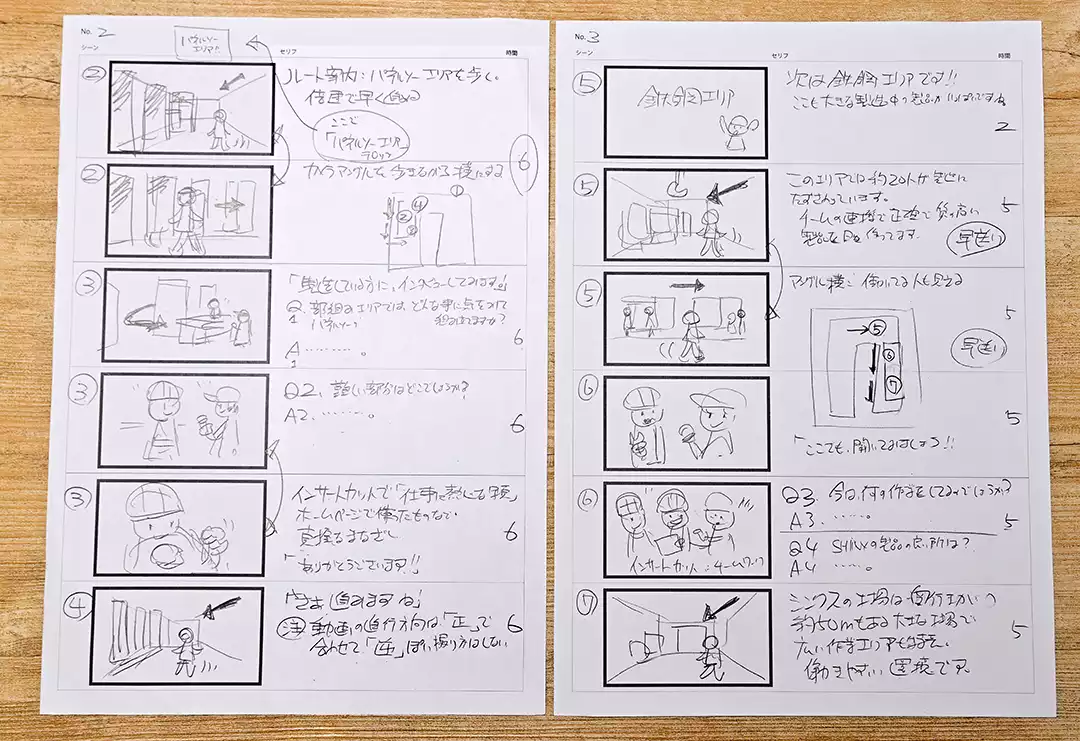 No. 2
シーン
セリフ
時間
パネルソー
エリア!
②
ルート案内:パネルソーエリアを歩く。
倍速で早く進める
ここで
「パネルソーエリア」
テロップ
6
②
カメラアングルを歩きながら横にする
①
②
④
③
「製造をしている方に、インタビューしてみます。」
Q 部組のエリアでは、どんな事に点をつけて
1 パネルソー
組みまれてますか?
A
1 ………。
6
③
Q2、難しい部分はどこでしょうか?
A2、……。
6
③
インサートカットで「仕事に熱している写真」
ホームページで使ったものなど
真操るまなざし
「ありがとうございます!!」
6
④
「さあ 進みますね」
注 動画の進行方向は「正」で
合わせて「逆」ぽい撮り方はしない
6
No. 3
シーン
セリフ
時間
⑤
鉄鋼エリア
次は鉄鋼エリアです!!
ここも大きな製造中の製品がいっぱいですね
2
⑤
このエリアでは約20人が製造に
たずさわっています。
チームの連携で正確で質の高い
製品を日々作ってます。
早送り
5
⑤
アングル横:働いてる人も見える
⑤
⑥
⑦
早送り
5
⑥
「ここでも、聞いてみましょう!!
5
⑥
インサートカット:チームワーク
Q3、今は何の作業をしてるのでしょうか?
A3、……。
Q4 SHINXの製品の良い所は?
A4 ……。
5
⑦
シンクスの工場は奥行エがいつ
約50mもある大きな工場で
広い作業エリアも確保。
働きやすい環境です
5